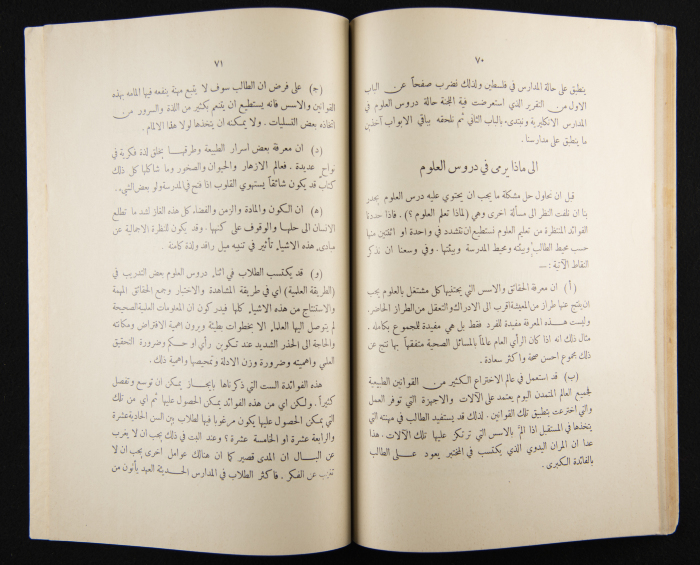 ٧٠
ينطبق على حالة المدارس في فلسطين ولذلك نضرب صفحاً عن الباب
الاول من التقرير الذي استعرضت فيه اللجنة حالة دروس العلوم في
المدارس الانكليزية ونبتدىء بالباب الثاني ثم نلحقه بباقي الابواب آخذين
ما ينطبق على مدارسنا .
الى ماذا يرمى في دروس العلوم
قبل ان نحاول حل مشكلة ما يجب ان يحتوي عليه درس العلوم يجدر
بنا ان نلفت النظر الى مسألة اخرى وهي ( لماذا تعلم العلوم ؟ ) . فاذا حددنا
الفوائد المنتظرة من تعليم العلوم نستطيع ان نتشدد في واحدة او اثنتين منها
حسب محيط الطالب وبيئته ومحيط المدرسة وبيئتها . وفي وسعنا ان نذكر
النقاط الآتية : —
( أ ) ان معرفة الحقائق والاسس التي يجتنيها كل مشتغل بالعلوم يجب
ان ينتج عنها طراز من المعيشة اقرب الى الادراك والتعقل من الطراز الحاضر .
وليست هذه المعرفة مفيدة للفرد فقط بل هي مفيدة للمجموع بكامله .
مثال ذلك انه اذا كان الرأي العام عالماً بالمسائل الصحية متفقهاً بها نتج عن
ذلك مجموع احسن صحة واكثر سعادة .
( ب ) قد استعمل في عالم الاختراع الكثير من القوانين الطبيعية
فجميع العالم المتمدن اليوم يعتمد على الآلات والاجهزة التي توفر العمل
والتي اخترعت بتطبيق تلك القوانين . لذلك قد يستفيد الطالب في مهنته التي
يتخذها في المستقبل اذا المّ بالاسس التي ترتكز عليها تلك الآلات . هذا
عدا ان المران اليدوي الذي يكتسب في المختبر يعود على الطالب
بالفائدة الكبرى .
٧١
( ج ) على فرض ان الطالب سوف لا يتبع مهنة ينفعه فيها المامه بهذه
القوانين والاسس فانه يستطيع ان يتنعم بكثير من اللذة والسرور من
اتخاذه بعض التسليات . ولا يمكنه ان يتخذها لولا هذا الالمام .
( د ) ان معرفة بعض اسرار الطبيعة وطرقها يخلق لذة فكرية في
نواح عديدة . فعالم الازهار والحيوان والصخور وما شاكلها كل ذلك
كتاب قد يكون شائقاً يستهوي القلوب اذا فتح في المدرسة ولو بعض الشيء .
( ه ) ان الكون والمادة والزمن والفضاء كل هذه الغاز لشد ما تطلع
الانسان الى حلها والوقوف على كنهها . وقد يكون للنظرة الاجمالية عن
مبادىء هذه الاشياء تأثير في تنبيه ميل راقد ولذة كامنة .
( و ) قد يكتسب الطلاب في اثناء دروس العلوم بعض التدريب في
( الطريقة العلمية ) اي في طريقة المشاهدة والاختبار وجمع الحقائق المهمة
والاستنتاج من هذه الاشياء كلها فيدركون ان المعلومات العلمية الصحيحة
لم يتوصل اليها العلماء الا بخطوات بطيئة ويرون اهمية الافتراض ومكانته
والحاجة الى الحذر الشديد عند تكوين رأي او حكم وضرورة التحقيق
العلمي واهميته وضرورة وزن الادلة وتمحيصها واهمية ذلك .
هذه الفوائد الست التي ذكرناها بايجاز يمكن ان توسع وتفصل
كثيراً . ولكن اي من هذه الفوائد يمكن الحصول عليها ثم اي من تلك
التي يمكن الحصول عليها يكون مرغوباً فيها لطلاب بين السن الحادية عشرة
والرابعة عشرة او الخامسة عشرة ؟ وعند البت في ذلك يجب ان لا يغرب
عن البال ان المدى قصير كما ان هنالك عوامل اخرى يجب ان لا
تغيب عن الفكر . فاكثر الطلاب في المدارس الحديثة العهد يأتون من